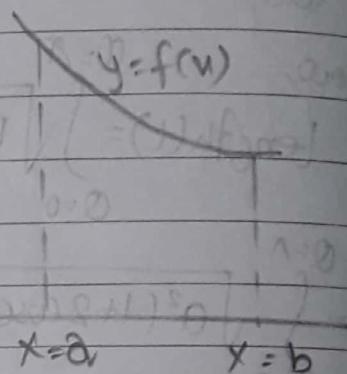 y=f(x)
x=a
x=b